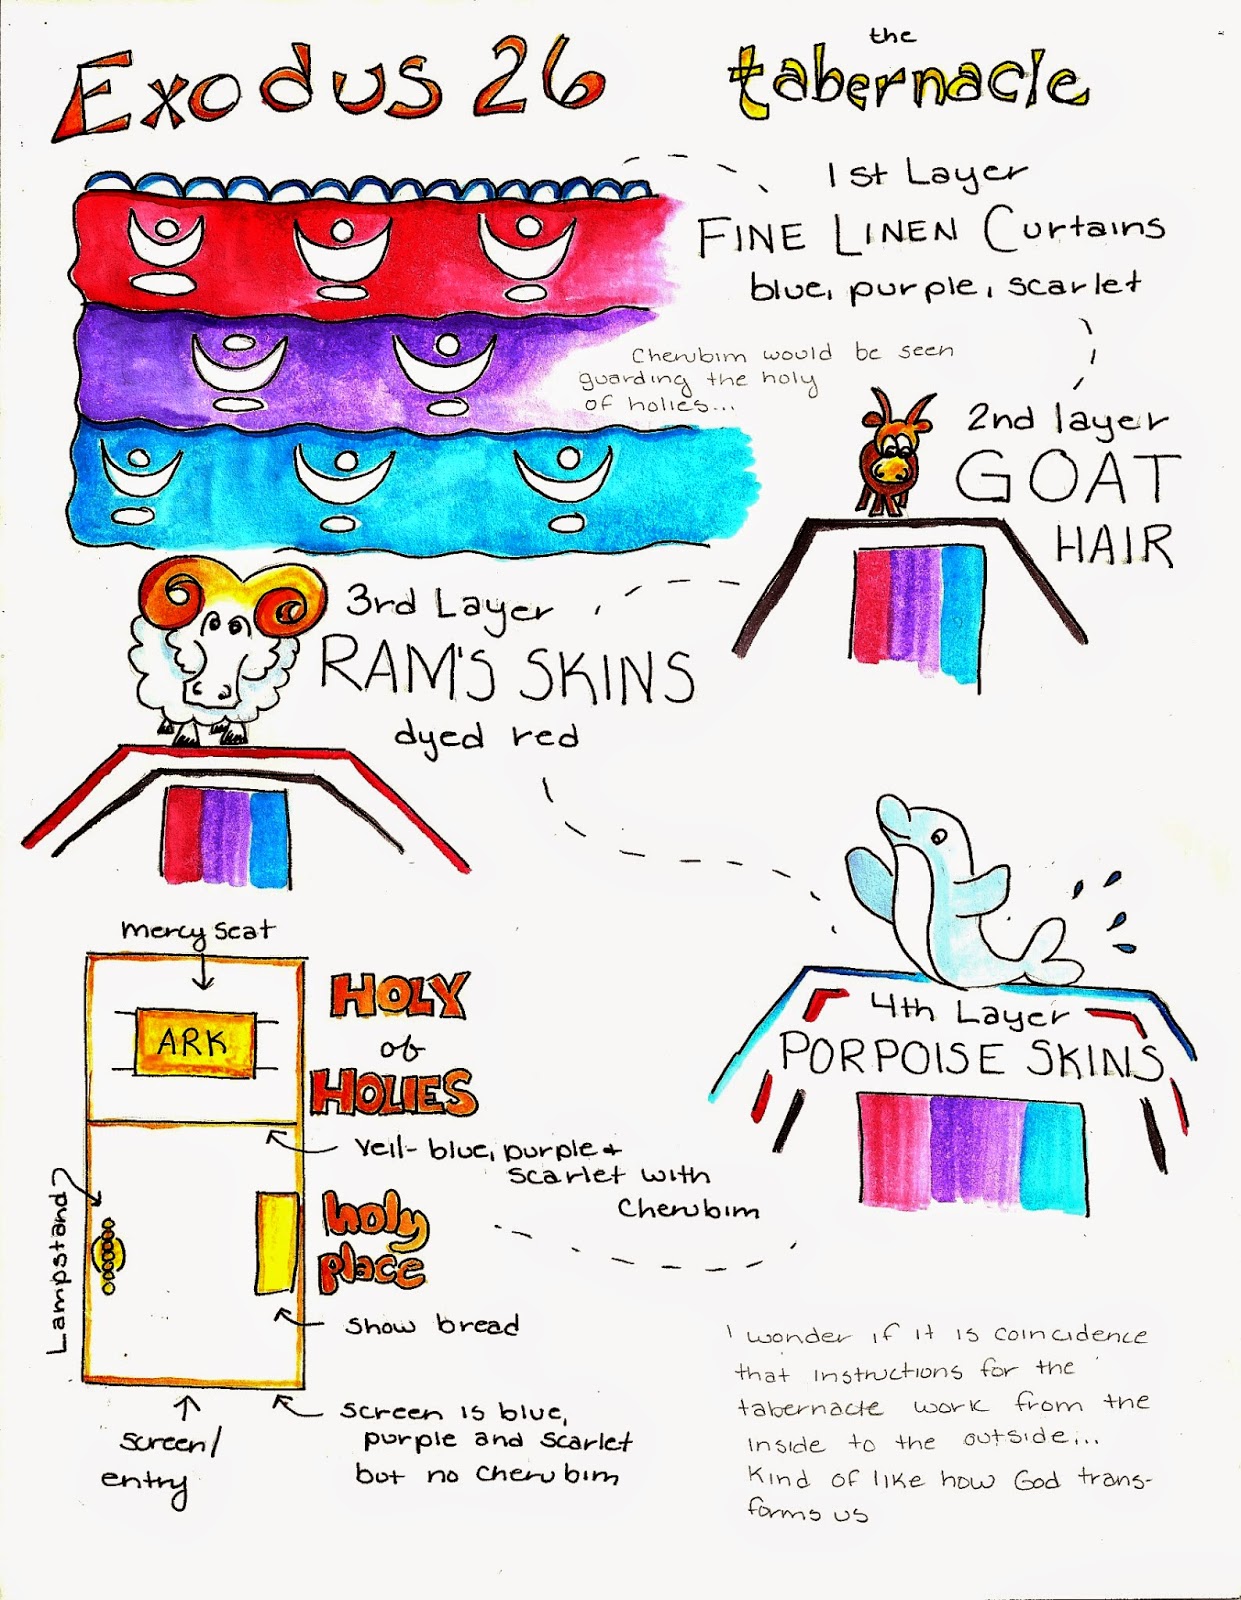 Exodus 26
the
tabernacle
1st Layer
FINE LINEN Curtains
blue, purple, scarlet
Cherubim would be seen
guarding the holy
of holies...
2nd layer
GOAT
HAIR
3rd Layer
RAM'S SKINS
dyed red
4th Layer
PORPOISE SKINS
mercy seat
ARK
HOLY
of
HOLIES
veil- blue, purple +
scarlet with
Cherubim
Lampstand
holy
place
show bread
screen/
entry
screen is blue,
purple and scarlet
but no cherubim
I wonder if it is coincidence
that instructions for the
tabernacle work from the
inside to the outside...
Kind of like how God trans-
forms us